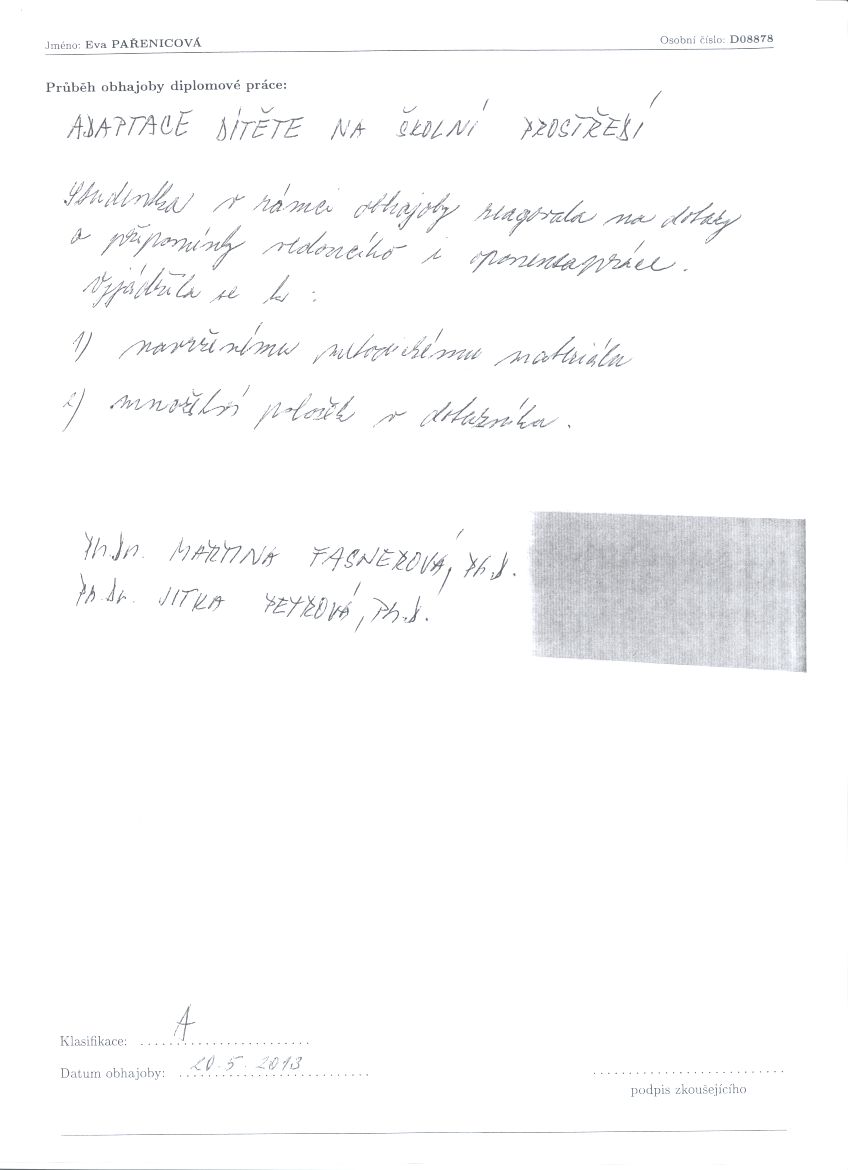 Jméno: Eva PAŘENICOVÁ Osobní číslo: D08878
Průběh obhajoby diplomové práce:
ADAPTACE DÍTĚTE NA ŠKOLNÍ PROSTŘEDÍ
Studentka v rámci obhajoby reagovala na dotazy
a připomínky vedoucího i oponenta práce.
Vyjádřila se k :
1) navrženému metodickému materiálu
2) množství položek v dotazníku.
Ph.Dr. MARTINA FASNEROVÁ, Ph.D.
Ph.Dr. JITKA PETROVÁ, Ph.D.
Klasifikace: A
Datum obhajoby: 20.5.2013
podpis zkoušejícího